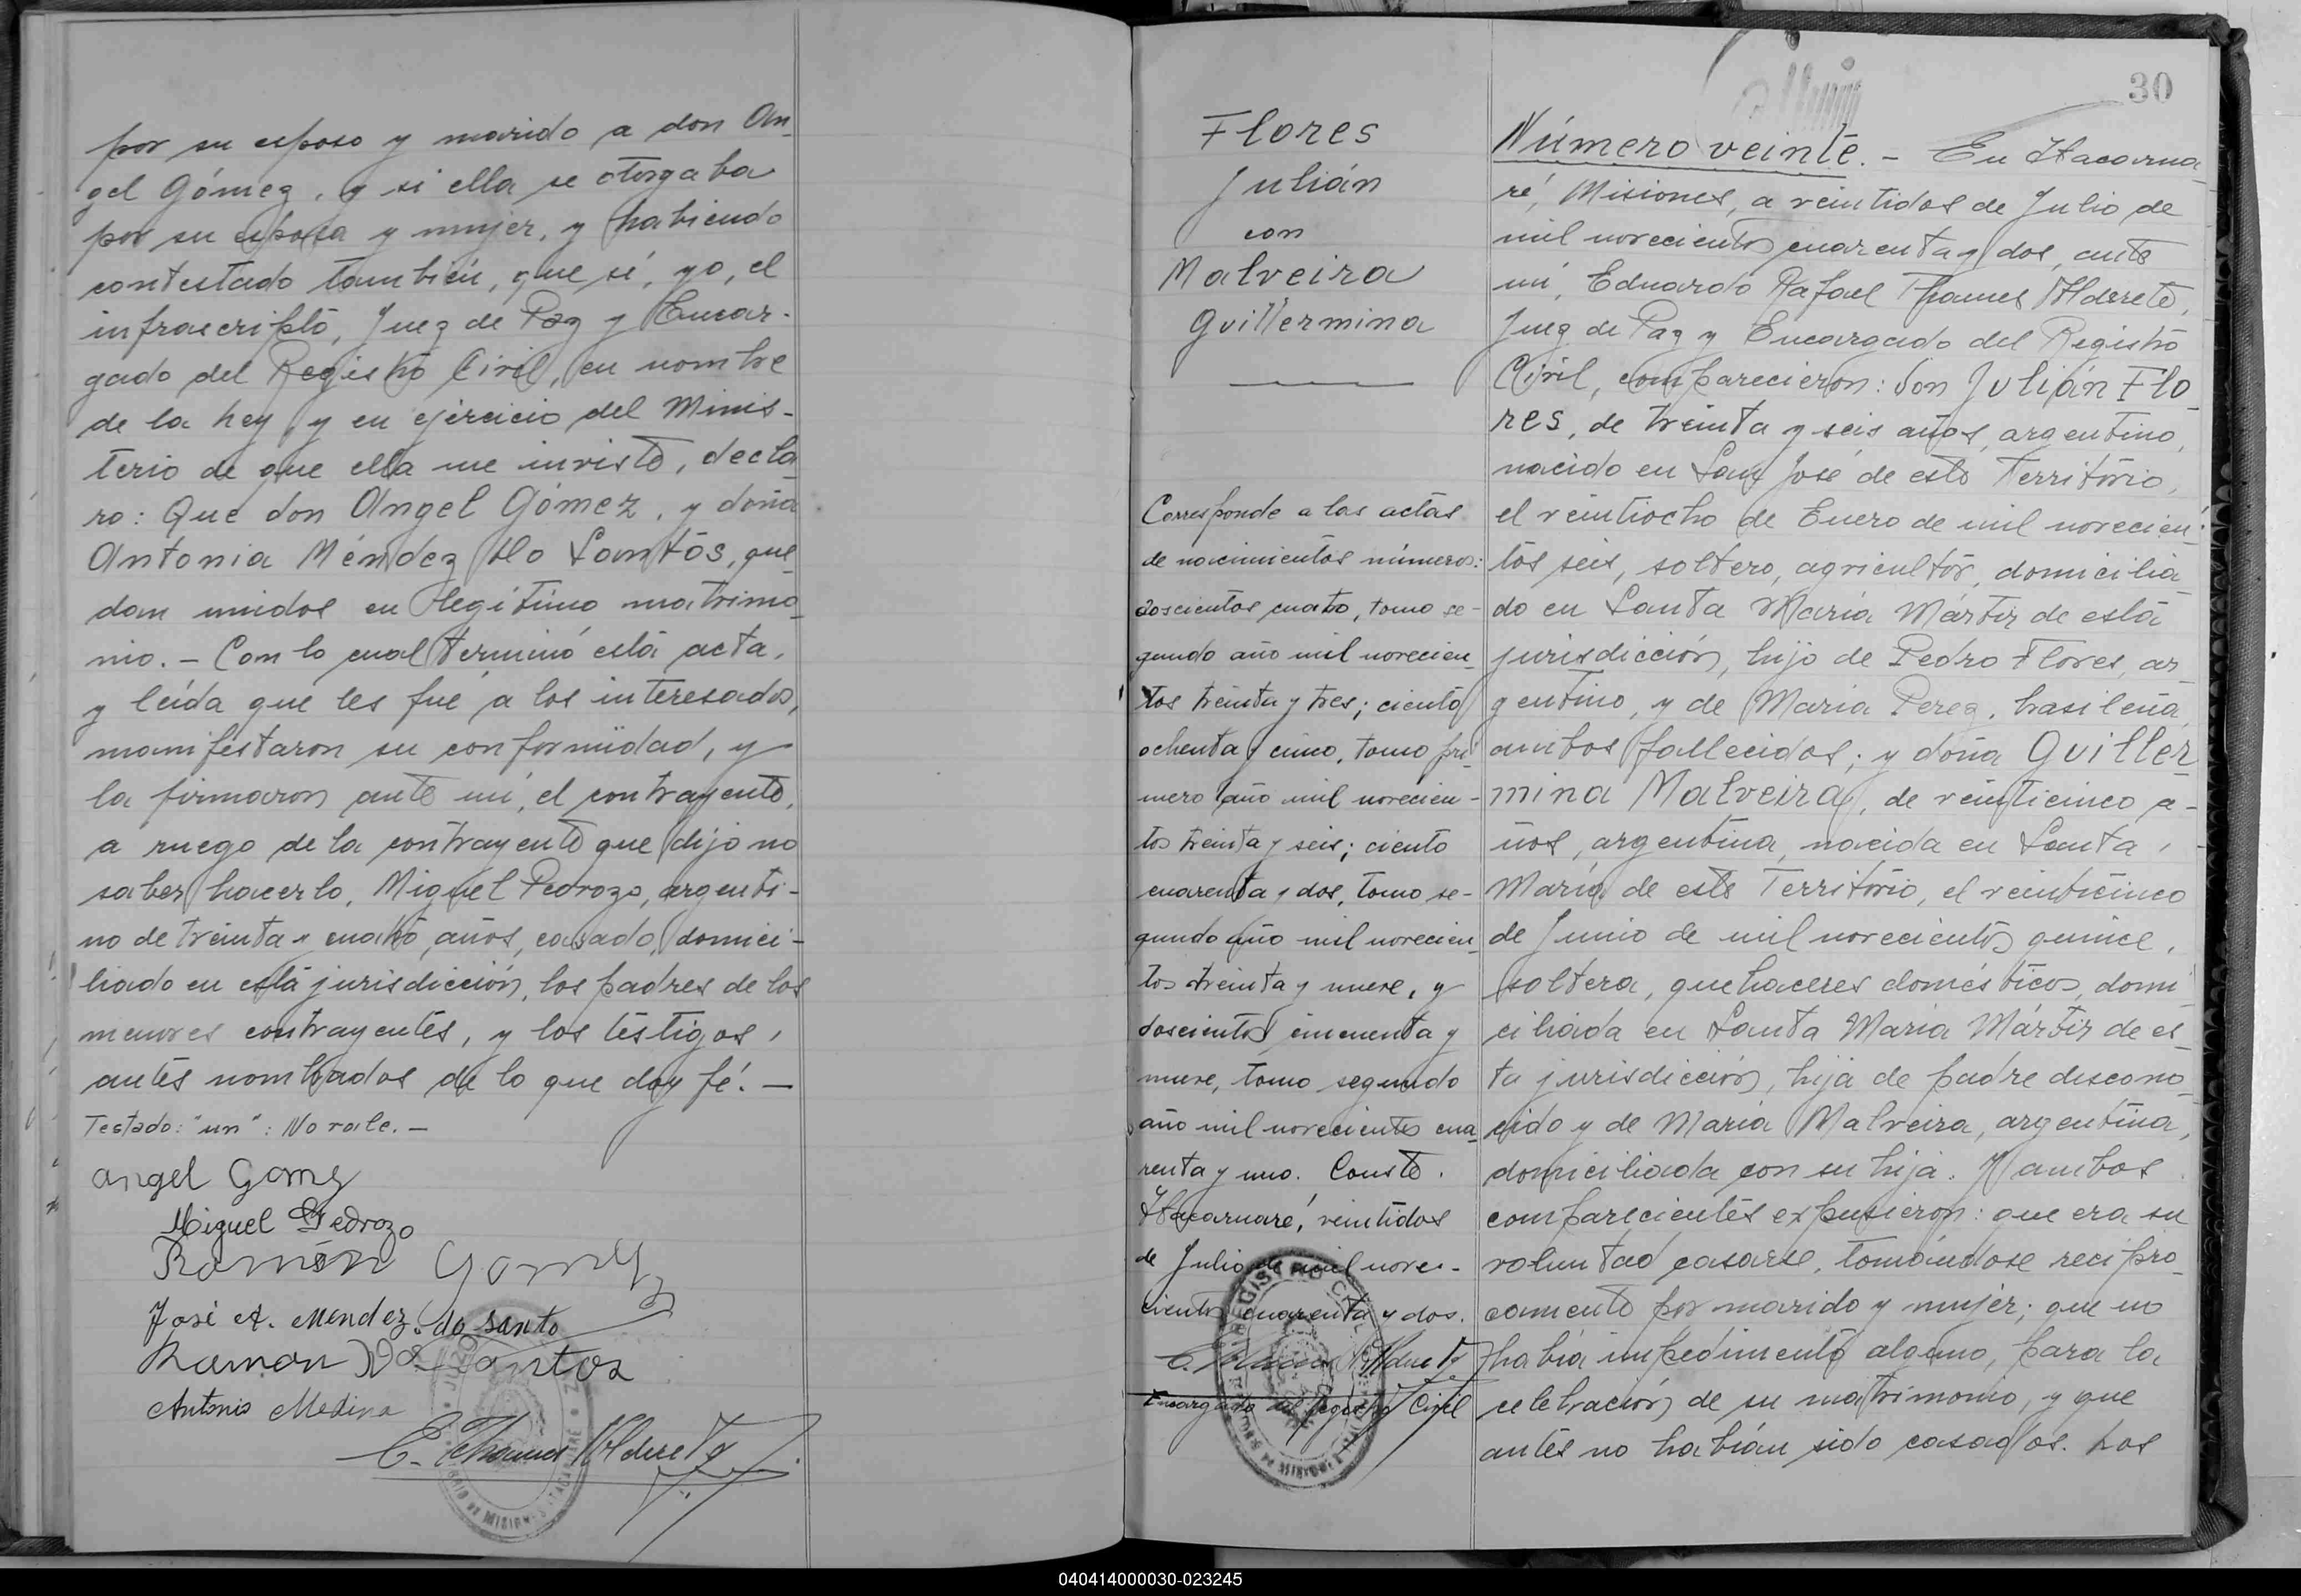 por su esposo y marido a don An_
gel Gómez, y si ella se otorgaba
por su esposa y mujer, y habiendo
contestado también, que sí, yo, el
infrascripto, Juez de Paz y Encar-
gado del Registro Civil, en nombre
de la Ley y en ejercicio del Minis-
terio de que ella me inviste, decla
ro: Que don Angel Gómez, y doña
Antonia Méndez Do Santos, que_
dan unidos en legítimo matrimo_
nio. - Con lo cual terminó esta acta,
y leída que les fué a los interesados,
manifestaron su conformidad, y
la firmaron ante mí, el contrayente,
a ruego de la contrayente que dijo no
saber hacerlo, Miguel Pedrozo, argenti-
no de treinta y cuatro años, casado, domici-
liado en esta jurisdicción, los padres de los
menores contrayentes, y los testigos,
antes nombrados de lo que doy fé. —
Testado: "un": No vale. —
Angel Gomez
Miguel Pedrozo
Ramón Gomez
José A. Mendez do santo
Ramon Do Santos
Antonio Medina
E. Thames Alderete
30
Flores
Julián
con
Malveira
Guillermina
Corresponde a las actas
de nacimientos números:
doscientos cuatro, tomo se-
gundo año mil novecien_
tos treinta y tres; ciento
ochenta y cinco, tomo pri
mero año mil novecien-
tos treinta y seis; ciento
cuarenta y dos, tomo se-
gundo año mil novecien_
tos treinta y nueve, y
doscientos cincuenta y
nueve, tomo segundo
año mil novecientos cua_
renta y uno. Conste.
Itacaruaré, veintidos
de Julio de mil nove-
cientos cuarenta y dos.
E. Thames Alderete
Encargado del Registro Civil
Número veinte. - En Itacarua_
ré, Misiones, a veintidos de Julio de
mil novecientos cuarenta y dos, ante
mí, Eduardo Rafael Thames Alderete,
Juez de Paz y Encargado del Registro
Civil, comparecieron: don Julián Flo_
res, de treinta y seis años, argentino,
nacido en San José de este Territorio,
el veintiocho de Enero de mil novecien-
tos seis, soltero, agricultor, domicilia_
do en Santa María Mártir de esta
jurisdicción, hijo de Pedro Flores, ar_
gentino, y de María Perez, brasileña,
ambos fallecidos; y doña Guiller_
mina Malveira, de veinticinco a-
ños, argentina, nacida en Santa
María de este Territorio, el veinticinco
de Junio de mil novecientos quince,
soltera, quehaceres domésticos, domi_
ciliada en Santa María Mártir de es_
ta jurisdicción, hija de padre descono_
cido y de María Malveira, argentina,
domiciliada con su hija. Y ambos
comparecientes expusieron: que era su
voluntad casarse, tomándose recípro_
camente por marido y mujer; que no
había impedimento alguno, para la
celebración de su matrimonio, y que
antes no habían sido casados. Los
040414000030-023245